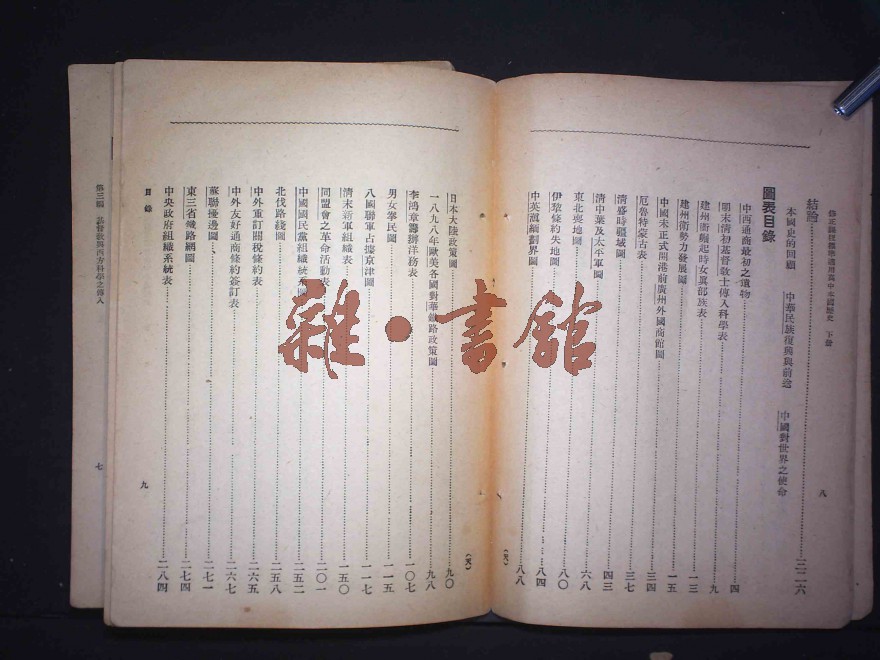 結論……三二六
本國史的回顧 中華民族復興與前途 中國對世界之使命
圖表目錄
中西通商最初之遺物……四
明末清初基督教士傳入科學表……九
建州衛崛起時女真部族表……一三
建州衛勢力發展圖……一五
中國未正式開港前廣州外國商館圖
厄魯特蒙古表……三四
清盛時疆域圖……三七
清中葉及太平軍圖……四三
東北喪地圖……六八
伊犂條約失地圖……八〇
中英滇緬劃界圖……八四
八八
八
日本大陸政策圖……九〇
一八九八年歐美各國對華鐵路政策圖……九八
李鴻章籌辦洋務表……一〇七
男女拳民圖……一一五
八國聯軍占據京津圖……一一七
清末新軍組織表……一五〇
同盟會之革命活動表……二〇一
中國國民黨組織統系圖……二五二
北伐路綫圖……二五八
中外重訂關稅條約表……二六五
中外友好通商條約簽訂表……二六七
蘇聯擾邊圖……二七一
東三省鐵路網圖……二七四
中央政府組織系統表……二八四
目錄
九
第三編 基督教與西方科學之傳入
七
雜·書館